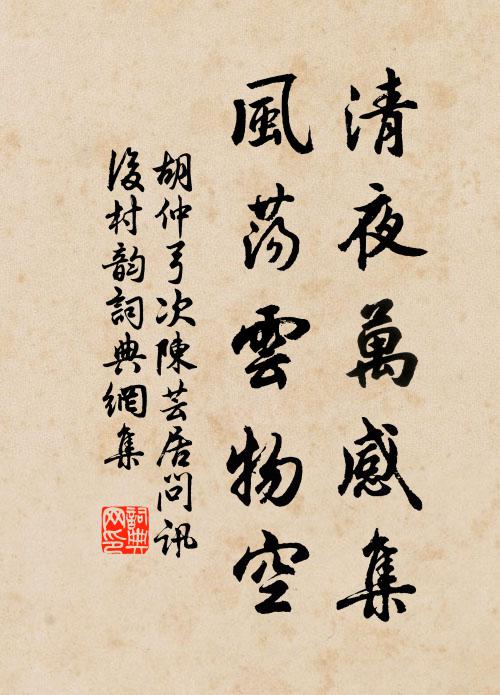 清夜萬感集
風荡雲物空
胡仲弓次陳芸居問訊
後村韵詞典網集
詞典
网印